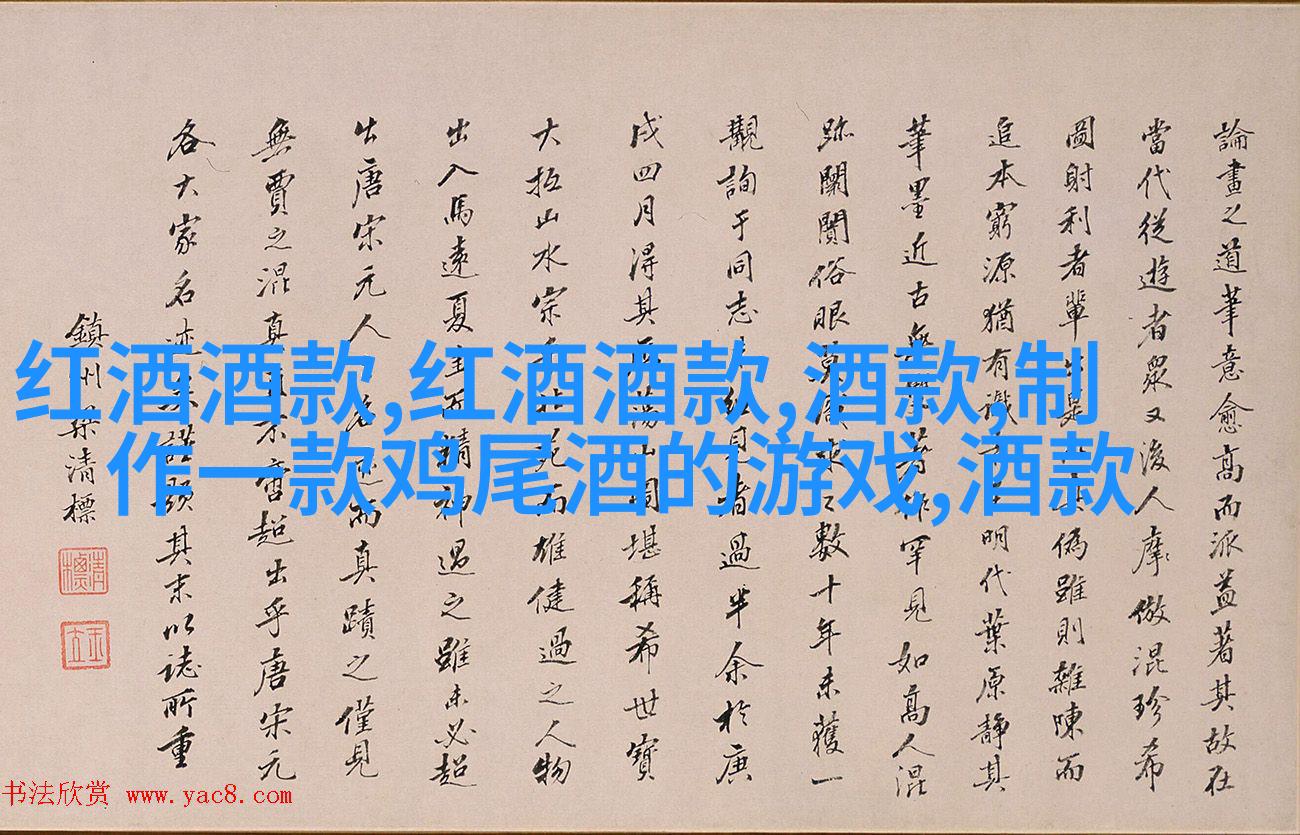 論畫之道筆意愈高而派益著其故在
當代從遊者眾又後人摩倣混珍希
圖射利者輩出是偽雖則雜陳而
追本窮源猶有識明代葉原靜其
筆墨近古無作罕見如高人混
跡闤闠俗眼莫求之數十年未獲一
觀詢于同志者過半余於庚
戌四月淂其山圖堪稱希世寶
大抵山水宗而雄健過之人物
出入馬遠夏圭而精神過之雖未必超
出唐宋元人名迹而真蹟之僅見
無賈之混真不啻超出乎唐宋元
各大家名迹謹題其末以誌所重
鎮州梁清標
清標
红酒酒款,红酒酒款,酒款,制
作一款鸡尾酒的游戏,酒款
书法欣赏 www.yac8.com